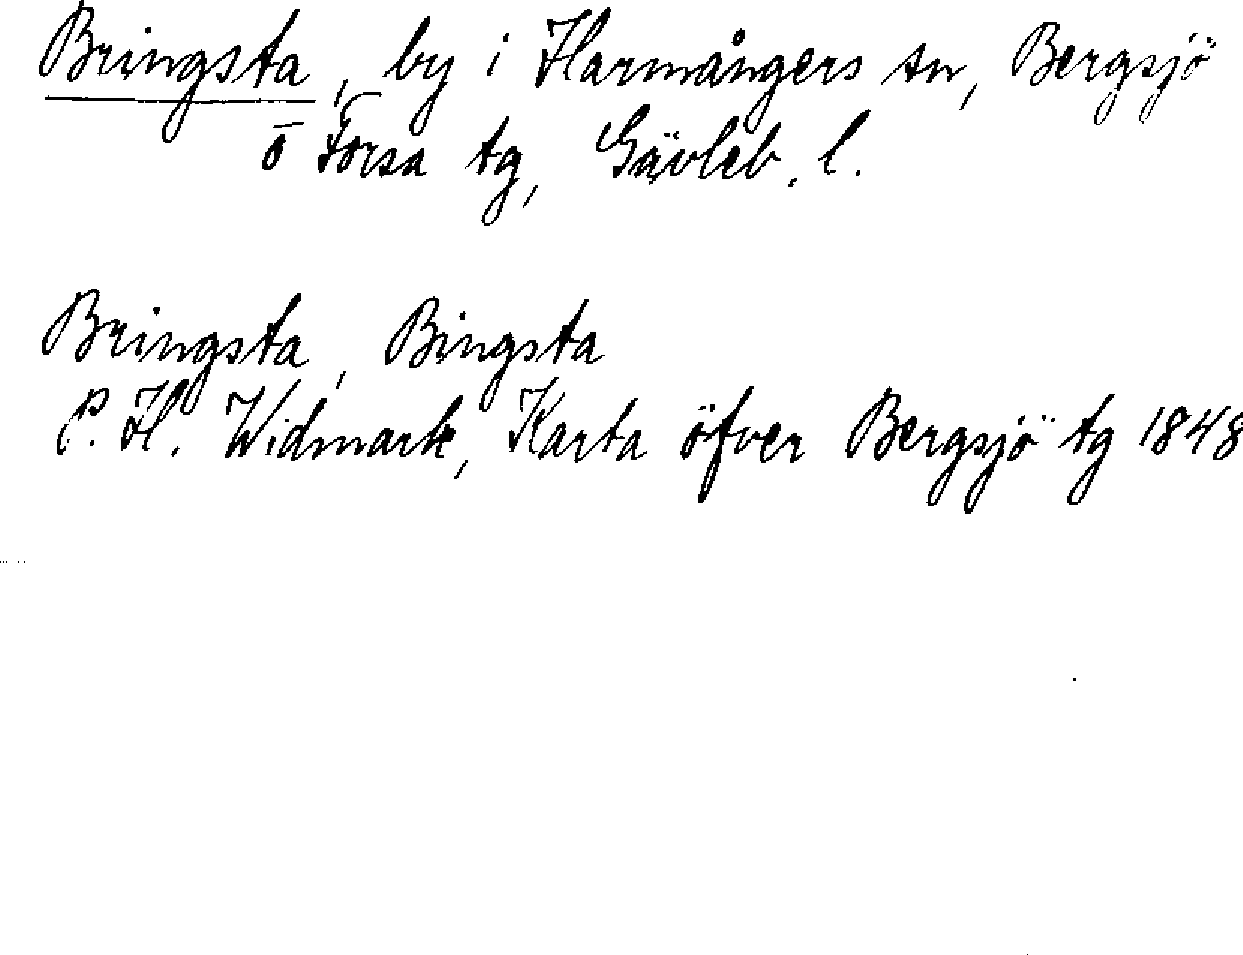 Bringsta, by i Harmångers sn, Bergsjö
o Forsa tg, Gävleb. l.
Bringsta, Bingsta
P. H. Widmark, Karta öfver Bergsjö tg 1848